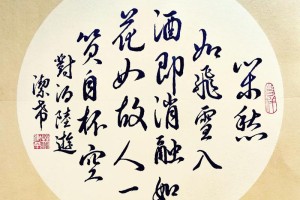 閑愁
如飛雪入
酒即消融好
花如故人一
笑自杯空
對酒陸遊